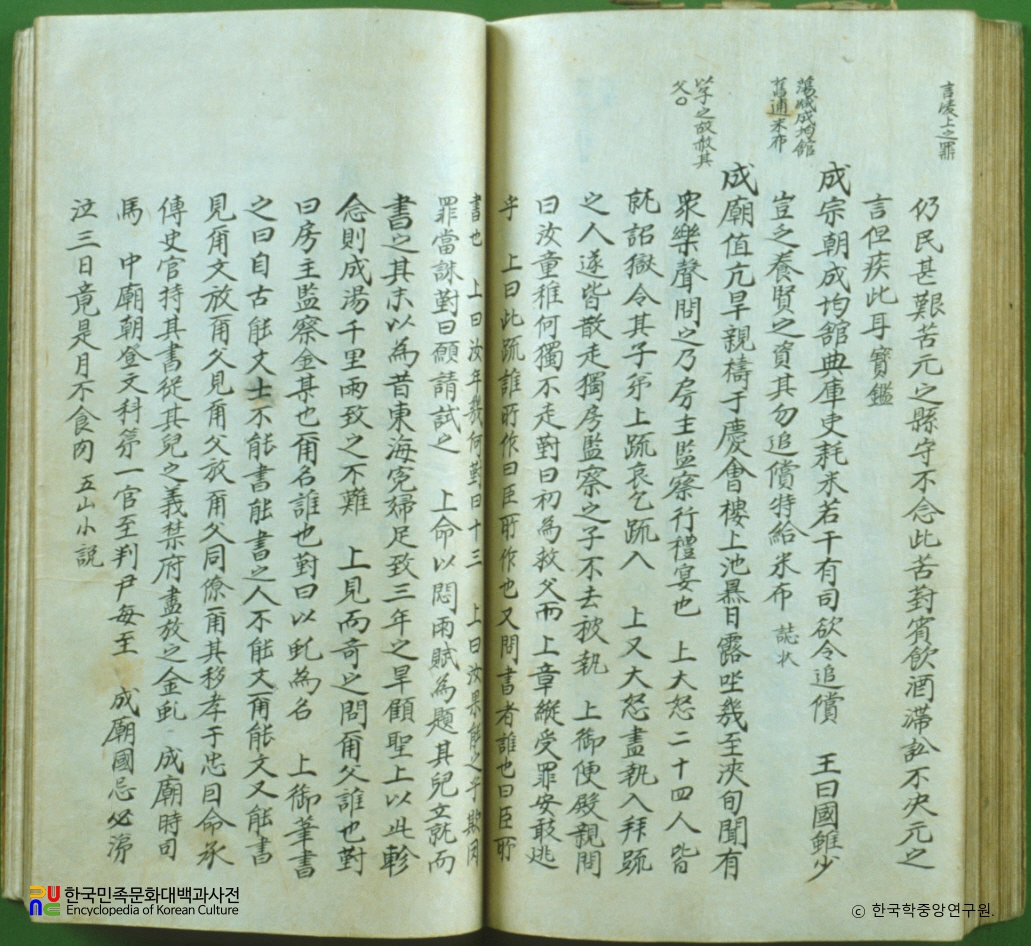 言陵上之罪
仍民甚艱苦元之縣守不念此苦對賓飮酒滯訟不決元之
言但疾此耳 寶鑑
蕩賦成均館
舊逋米布
成宗朝成均館典庫吏耗米若干有司欲令追償 王曰國雖少
豈乏養賢之資其勿追償特給米布 誌狀
以子之故赦其
父○
成廟値亢旱親禱于慶會樓上池暴日露坐幾至浹旬聞有
衆樂聲問之乃房主監察行禮宴也 上大怒二十四人皆
就詔獄令其子弟上疏哀乞疏入 上又大怒盡執入拜疏
之人遂皆散走獨房監察之子不去被執 上御便殿親問
曰汝童稚何獨不走對曰初爲救父而上章縱受罪安敢逃
乎 上曰此疏誰所作曰臣所作也又問書者誰也曰臣所
書也 上曰汝年幾何對曰十三 上曰汝果能之乎欺罔
罪當誅對曰願請試之 上命以悶雨賦爲題其兒立就而
書之其末以爲昔東海寃婦足致三年之旱顧聖上以此軫
念則成湯千里雨致之不難 上見而奇之問爾父誰也對
曰房主監察金某也爾名誰也對曰以虬爲名 上御筆書
之曰自古能文士不能書能書之人不能文爾能文又能書
見爾文放爾父見爾父放爾父同僚爾其移孝于忠因命承
傳史官持其書從其兒之義禁府盡放之金虬 成廟時司
馬 中廟朝登文科第一官至判尹每至 成廟國忌必涕
泣三日竟是月不食肉 五山小說
한국민족문화대백과사전
Encyclopedia of Korean Culture
ⓒ 한국학중앙연구원.